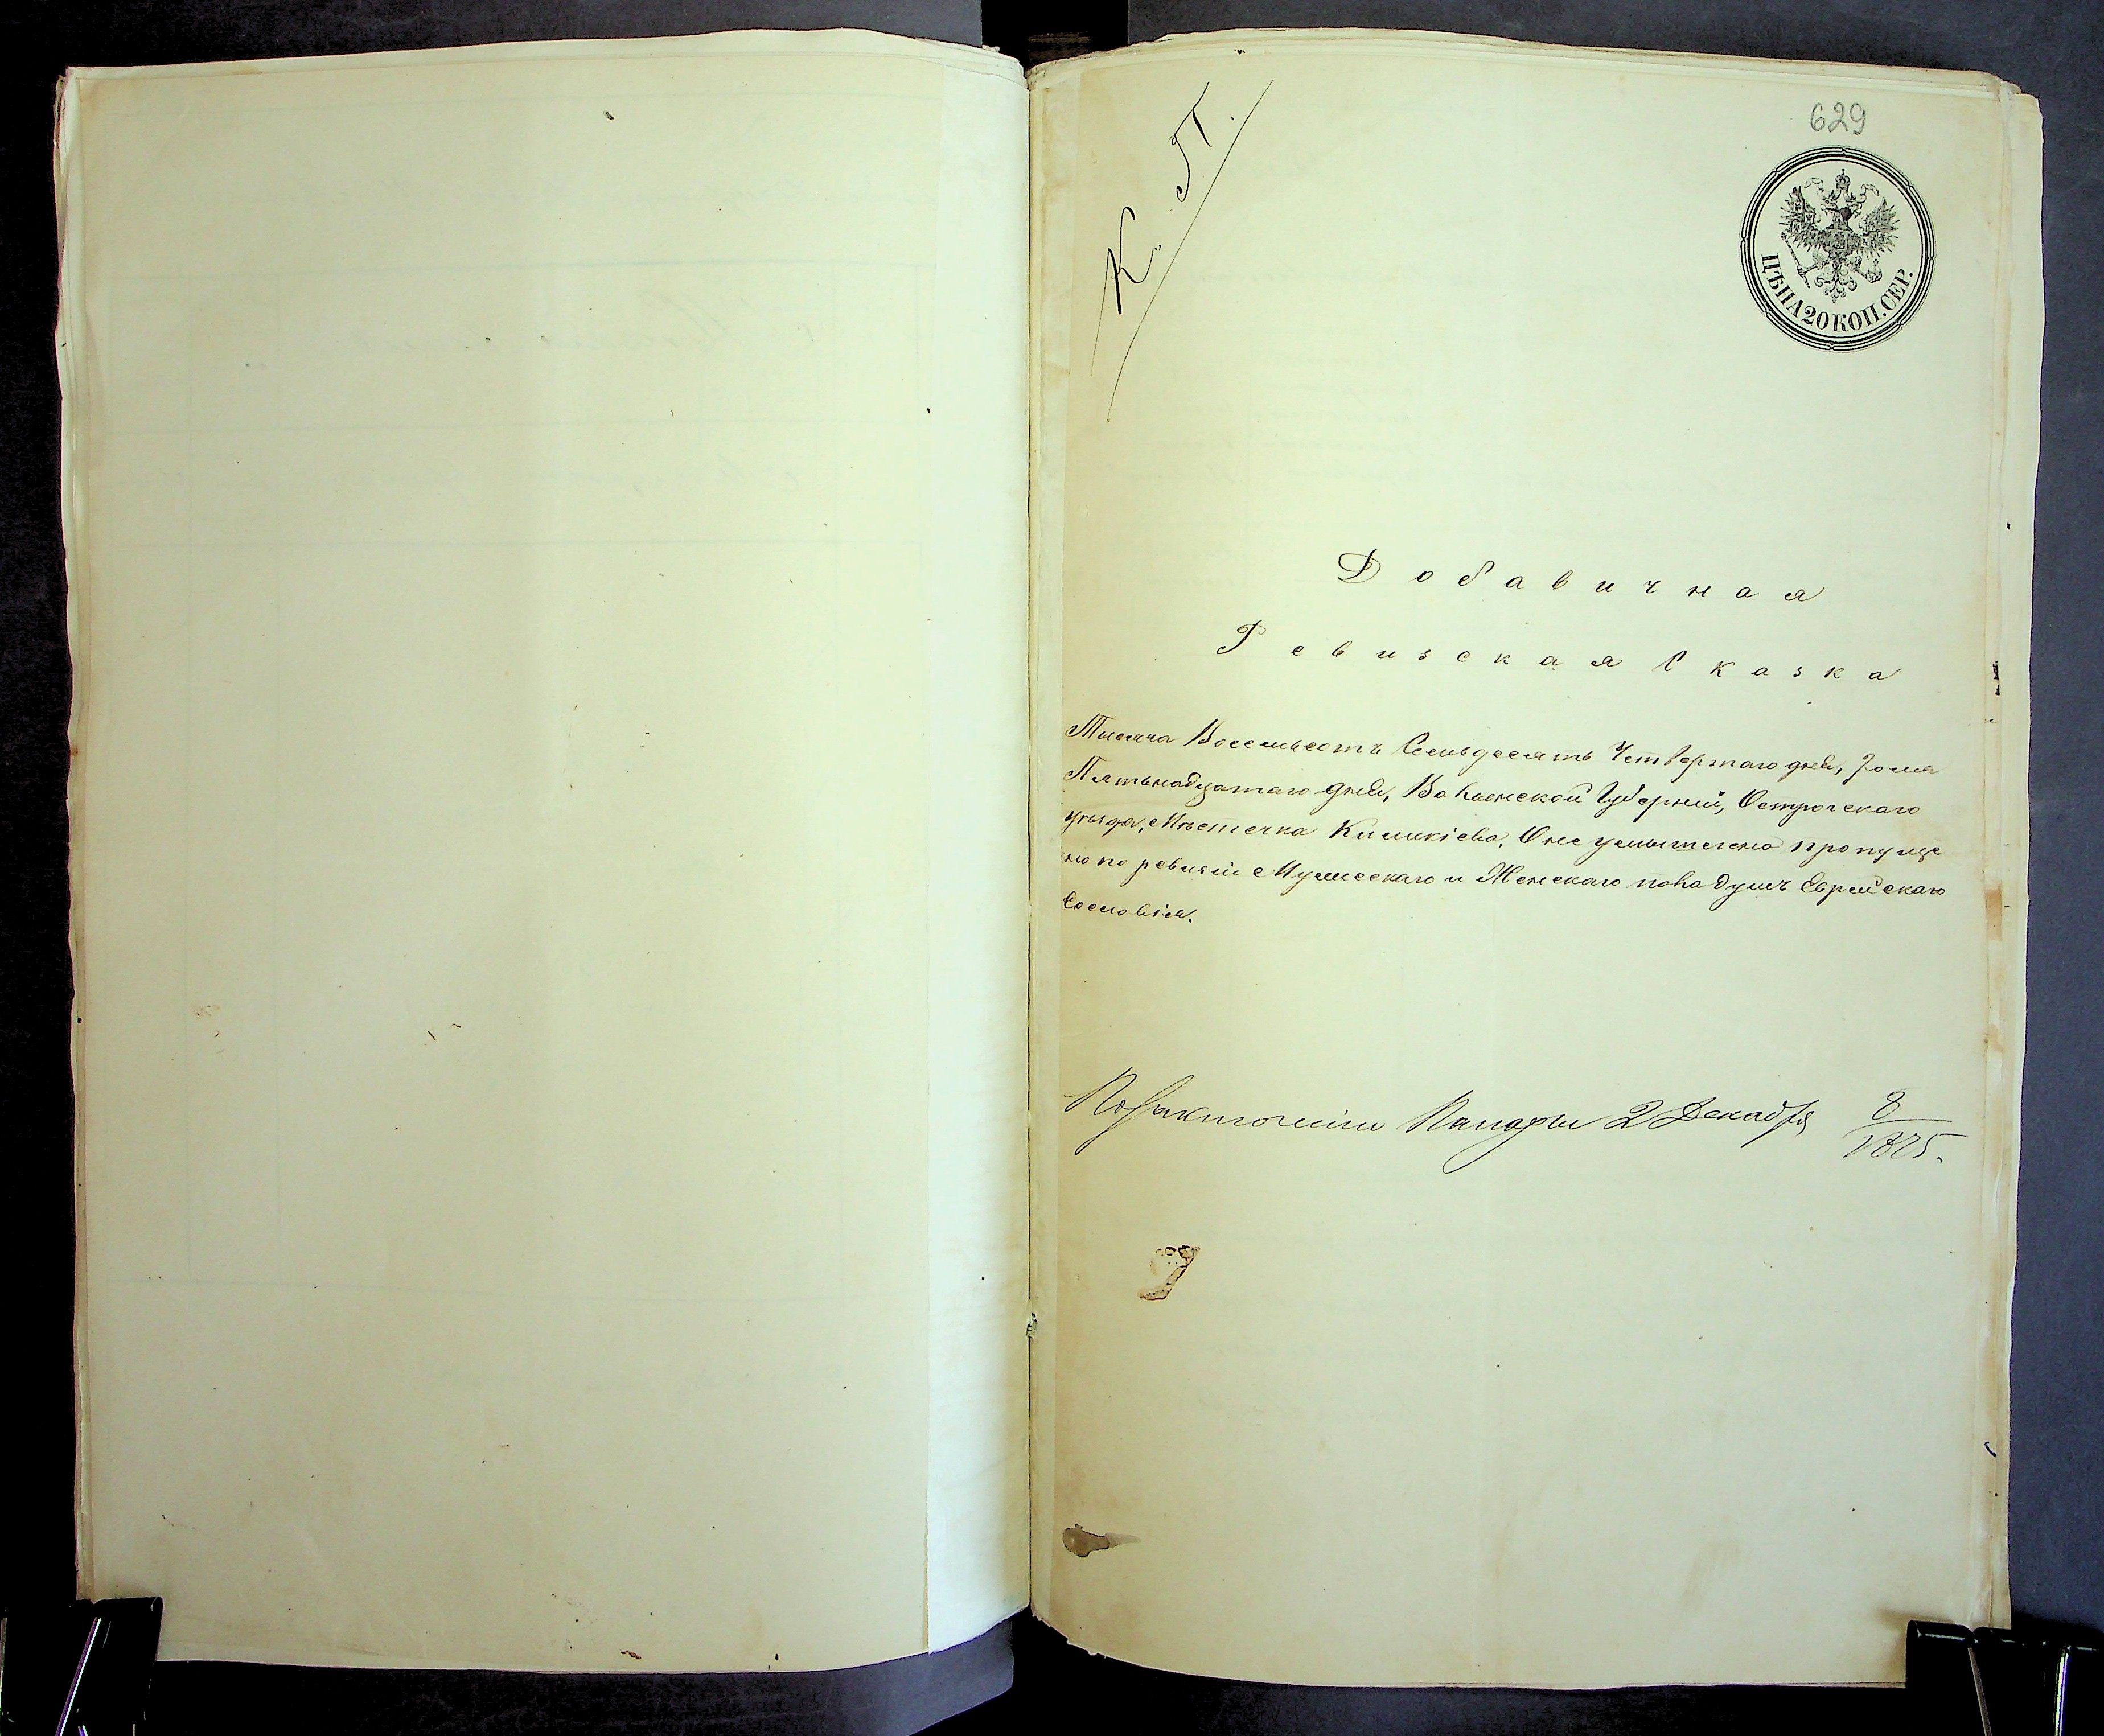 629
К. П.
ЦѢНА 20 КОП. СЕР.
Добавичная
Ревизская Сказка
Тысяча Восемьсотъ Семьдесятъ Четвертаго дня, Іюля
Пятьнадцатаго дня, Волынской Губерніи, Острогскаго
уѣзда, Мѣстечка Киликіева, О не умышлено пропуще
но по ревизіи Мужескаго и Женскаго пола душъ Еврейскаго
Сословія.
2 Декабря 8/1875.